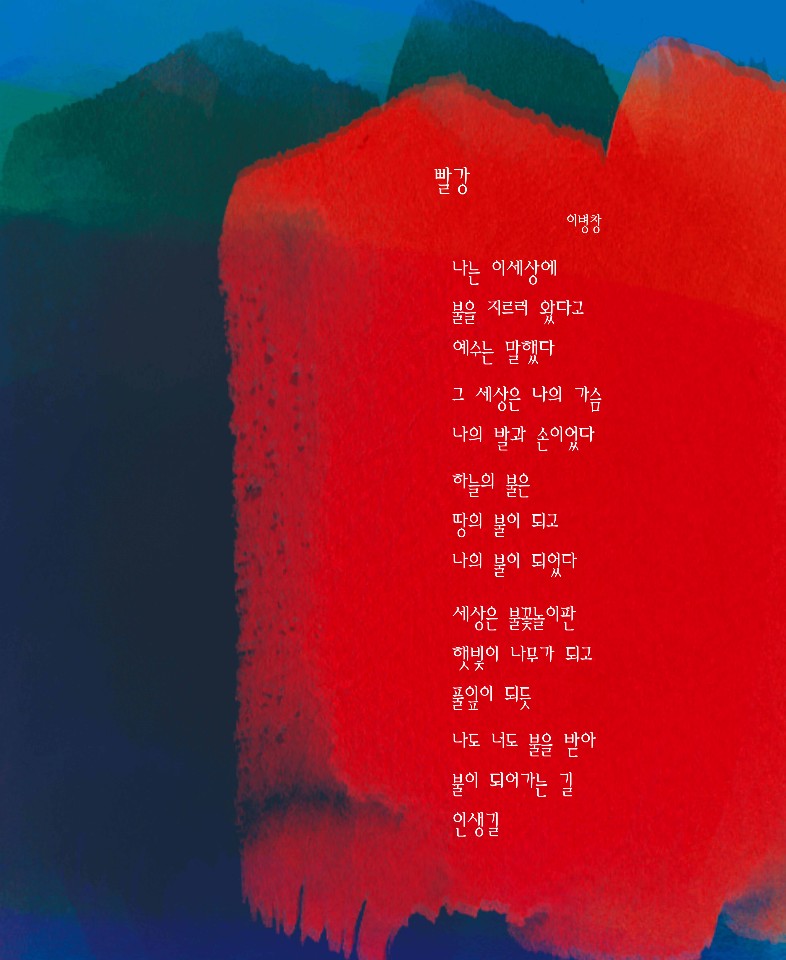 빨강
이병창
나는 이세상에
불을 지르러 왔다고
예수는 말했다
그 세상은 나의 가슴
나의 발과 손이었다
하늘의 불은
땅의 불이 되고
나의 불이 되었다
세상은 불꽃놀이판
햇빛이 나무가 되고
풀잎이 되듯
나도 너도 불을 받아
불이 되어가는 길
인생길